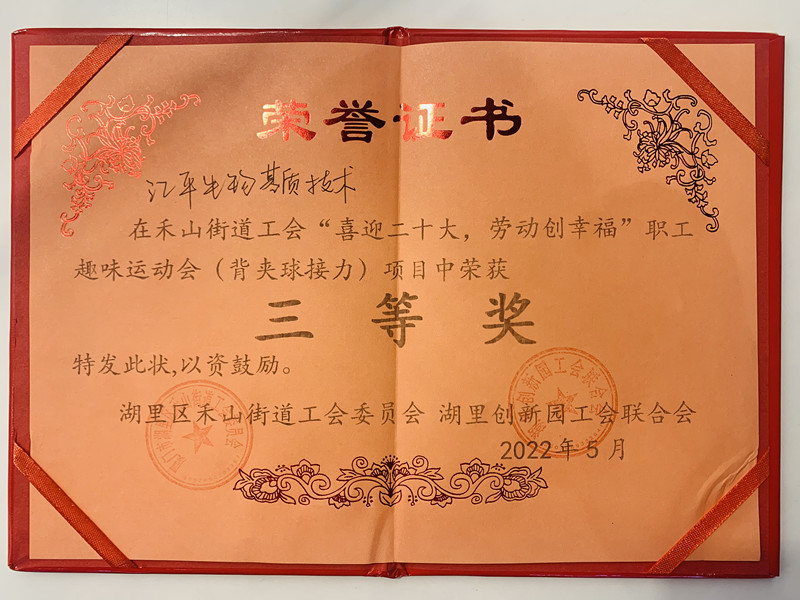 荣誉证书
江平生物基质技术
在禾山街道工会“喜迎二十大，劳动创幸福”职工
趣味运动会（背夹球接力）项目中荣获
三等奖
特发此状,以资鼓励。
湖里区禾山街道工会委员会 湖里创新园工会联合会
2022年5月